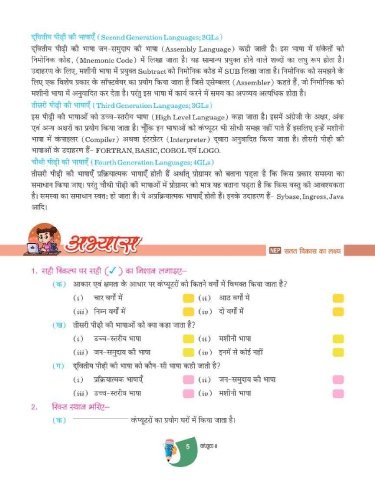 द्वितीय पीढ़ी की भाषाएँ (Second Generation Languages; 2GLs)
द्वितीय पीढ़ी की भाषा जन-समुदाय की भाषा (Assembly Language) कही जाती है। इस भाषा में संकेतों को
निमोनिक कोड, (Mnemonic Code) में लिखा जाता है। यह सामान्य प्रयुक्त होने वाले शब्दों का लघु रूप होता है।
उदाहरण के लिए, मशीनी भाषा में प्रयुक्त Subtract को निमोनिक कोड में SUB लिखा जाता है। निमोनिक को समझने के
लिए एक विशेष प्रकार के सॉफ्टवेयर का प्रयोग किया जाता है जिसे एसेम्बलर (Assembler) कहते हैं, जो निमोनिक को
मशीनी भाषा में अनुवादित कर देता है। परंतु इस भाषा में कार्य करने में समय का अपव्यय अत्यधिक होता है।
तीसरी पीढ़ी की भाषाएँ (Third Generation Languages; 3GLs)
इस पीढ़ी की भाषाओं को उच्च-स्तरीय भाषा (High Level Language) कहा जाता है। इसमें अंग्रेजी के अक्षर, अंक
एवं अन्य अक्षरों का प्रयोग किया जाता है। चूँकि इन भाषाओं को कंप्यूटर भी सीधी समझ नहीं पाते हैं इसलिए इन्हें मशीनी
भाषा में कंपाइलर (Compiler) अथवा इंटरप्रेटर (Interpreter) द्वारा अनुवादित किया जाता है। तीसरी पीढ़ी की
भाषाओं के उदाहरण हैं– FORTRAN, BASIC, COBOL एवं LOGO.
चौथी पीढ़ी की भाषाएँ (Fourth Generation Languages; 4GLs)
तीसरी पीढ़ी की भाषाएँ प्रक्रियात्मक भाषाएँ होती हैं अर्थात् प्रोग्रामर को बताना पड़ता है कि किस प्रकार समस्या का
समाधान किया जाए। परंतु चौथी पीढ़ी की भाषाओं में प्रोग्रामर को मात्र यह बताना पड़ता है कि किस वस्तु की आवश्यकता
है। समस्या का समाधान स्वत: हो जाता है। ये अप्रक्रियात्मक भाषाएँ होती हैं। इनके उदाहरण हैं– Sybase, Ingress, Java
आदि।
अभ्यास
NEP सतत विकास का लक्ष्य
1. सही विकल्प पर सही (✓) का निशान लगाइए–
(क) आकार एवं क्षमता के आधार पर कंप्यूटरों को कितने वर्गों में विभक्त किया जाता है?
(i) चार वर्गों में (ii) आठ वर्गों में
(iii) निम्न वर्गों में (iv) दो वर्गों में
(ख) तीसरी पीढ़ी की भाषाओं को क्या कहा जाता है?
(i) उच्च-स्तरीय भाषा (ii) मशीनी भाषा
(iii) जन-समुदाय की भाषा (iv) इनमें से कोई नहीं
(ग) द्वितीय पीढ़ी की भाषा को कौन-सी भाषा कही जाती है?
(i) प्रक्रियात्मक भाषाएँ (ii) जन-समुदाय की भाषा
(iii) उच्च-स्तरीय भाषा (iv) मशीनी भाषा
2. रिक्त स्थान भरिए–
(क) कंप्यूटरों का प्रयोग घरों में किया जाता है।
5
कंप्यूटर-8